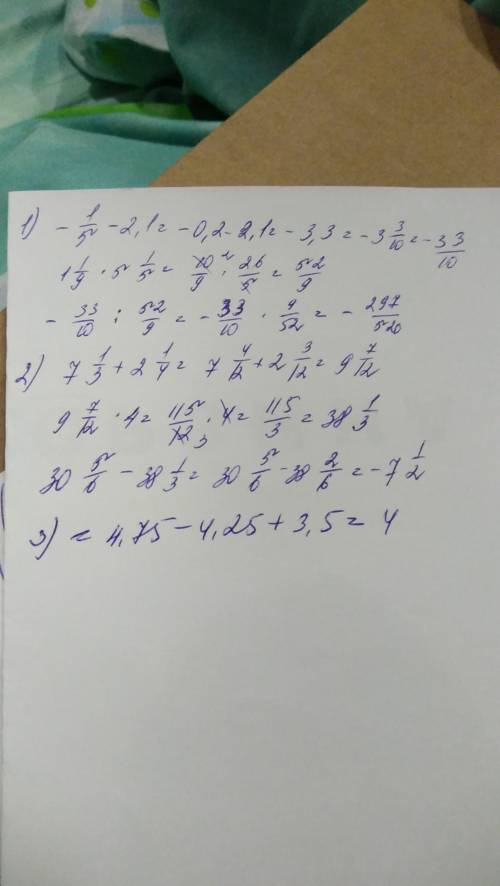 1) - 1/5 - 2,1 = - 0,2 - 2,1 = - 3,3 = - 3 3/10 = - 33/10
1 1/9 · 5 1/5 = 10/9 · 26/5 = 52/9
- 33/10 : 52/9 = - 33/10 · 9/52 = - 297/520
2) 7 1/3 + 2 1/4 = 7 4/12 + 2 3/12 = 9 7/12
9 7/12 · 4 = 115/12 · 4 = 115/3 = 38 1/3
30 5/6 - 38 1/3 = 30 5/6 - 38 2/6 = - 7 1/2
3) = 4,75 - 4,25 + 3,5 = 4